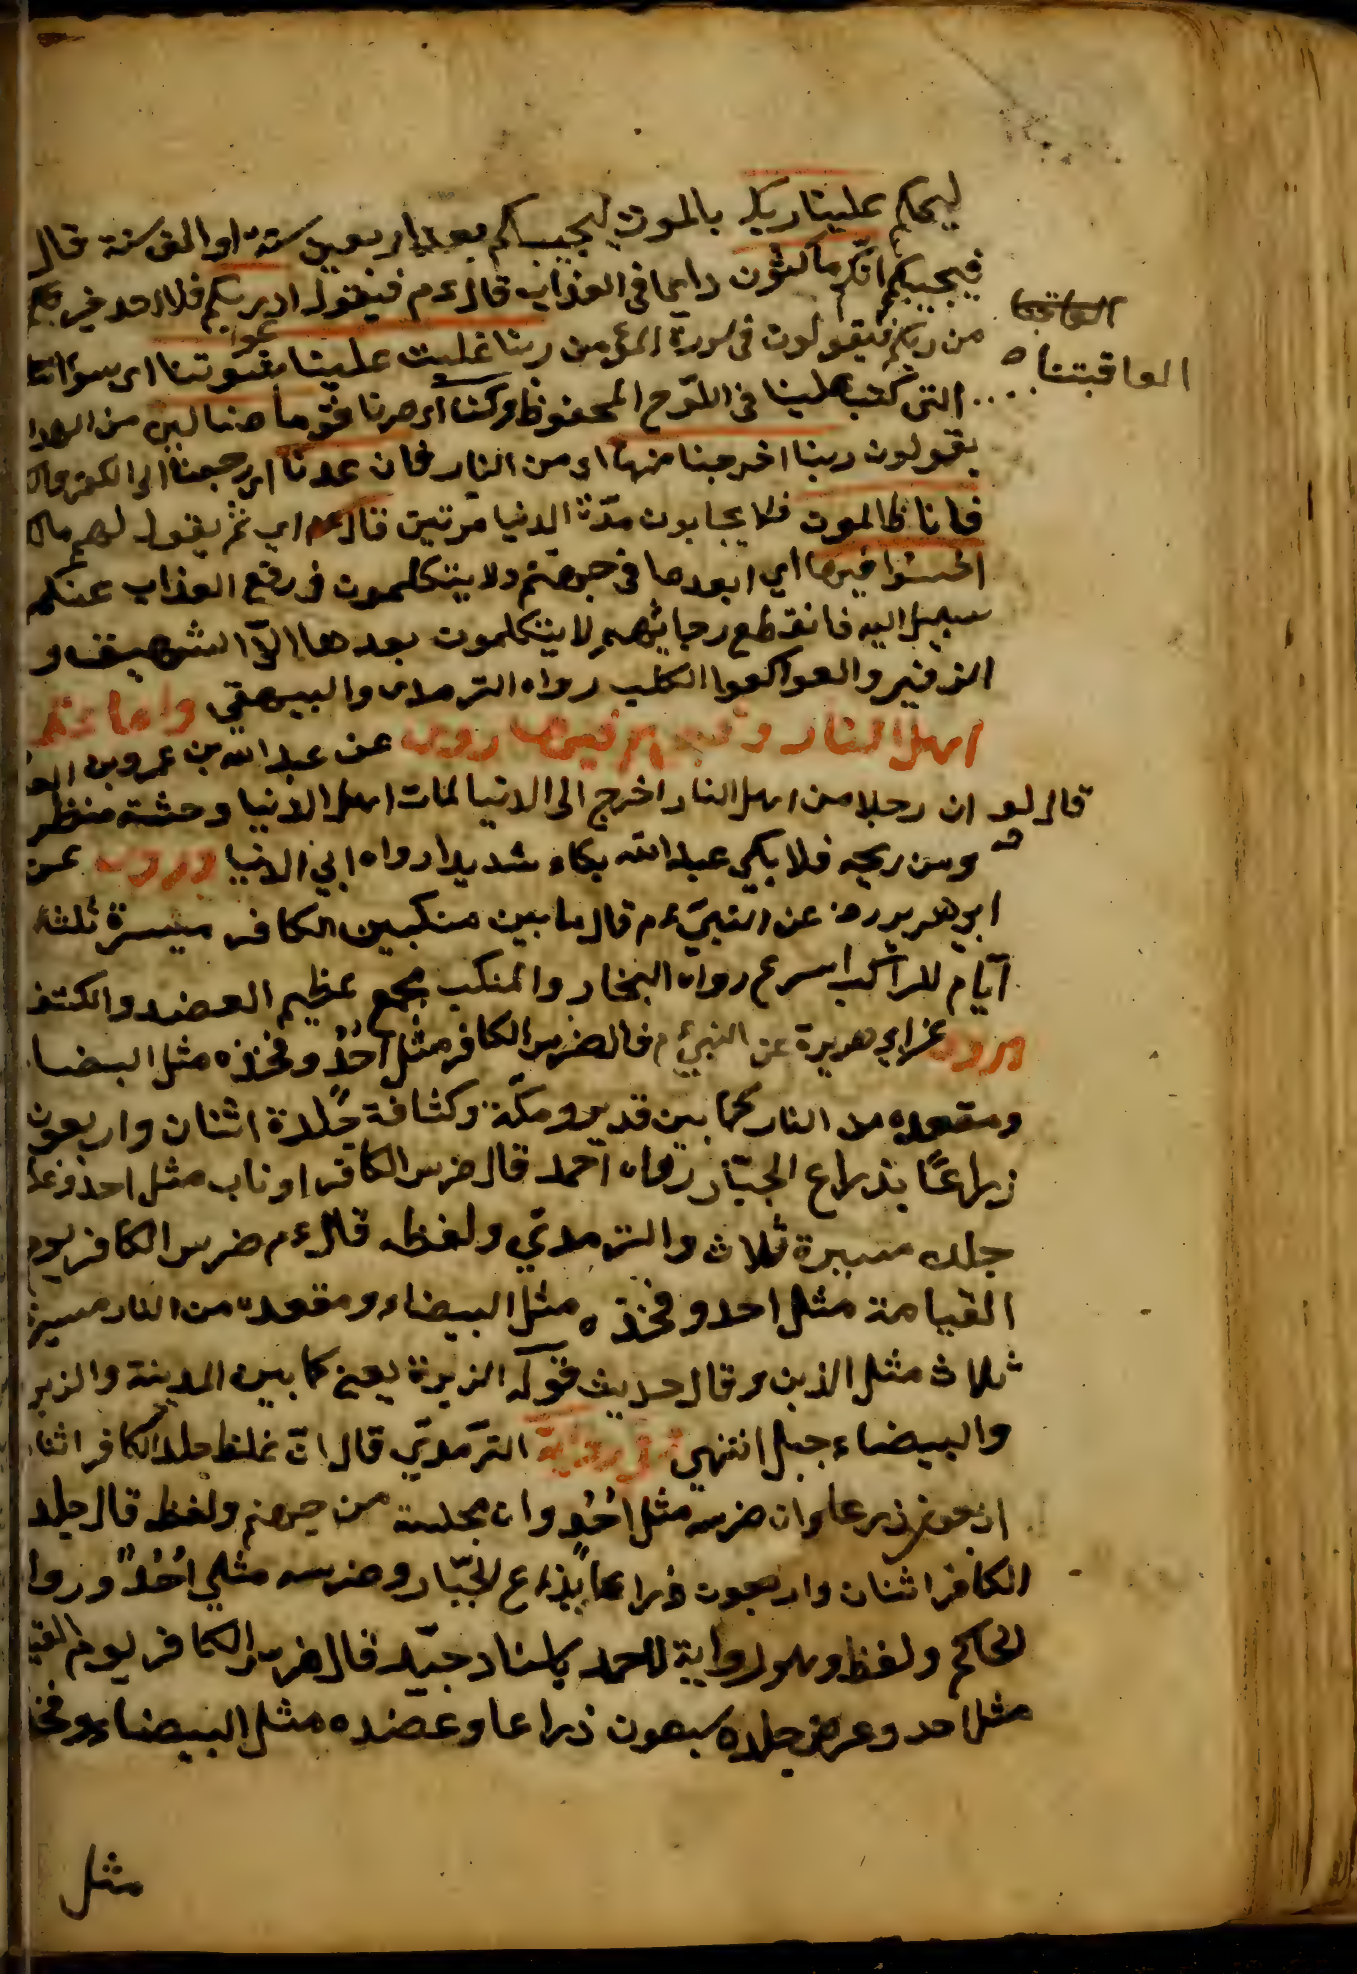 ليحكم علينا ربك بالموت ليجيبكم بعد اربعين سنة او الف سنة قال
فيجيبكم انكم ماكثون دايما في العذاب قال ءم فيقول ادعوا ربكم فلا احد خير لكم
من ربكم فيقولون في سورة المؤمن ربنا غلبت علينا شقوتنا اى سوا
العاقبتنا
التى كتب علينا في اللوح المحفوظ وكنا اى صرنا قوما ضالين من الهدا
يقولون ربنا اخرجنا منها اى من النار فان عدنا اى رجعنا الى الكفر
فانا ظالمون فلا يجابون مدة الدنيا مرتين قال ءم اي ثم يقول لهم
اخسئوا فيها اي ابعدوا في جهنم ولا يتكلمون في رفع العذاب عنكم
سبيل اليه فانقطع رجائهم لا يتكلمون بعدها الا الشهيق و
الزفير والعوا كعوا الكلب رواه الترمدى والبيهقي واما عظم
اهل النار وقبحهم فيها روى عن عبد الله بن عمرو بن
قال لو ان رجلا من اهل النار اخرج الى الدنيا لمات اهل الدنيا وحشة منظر
ه ومن ريحه فلا بكى عبد الله بكاء شديدا رواه ابي الدنيا وروى عن
ابى هريره رض عن النبي ءم قال ما بين منكبين الكافر ميسرة ثلثة
ايام للراكب اسرع رواه البخار والمنكب مجمع عظيم العضد والكتف
وروى عن ابى هريرة عن النبي ءم قال ضرس الكافر مثل احد وفخذه مثل البيضا
ومقعده من النار كما بين قديد ومكة وكثافة جلدة اثنان واربعون
زراعا بذراع الجبار رواه احمد قال ضرس الكافر او ناب مثل احد وغلظ
جلده مسيرة ثلاث والترمدي ولفظه قال ءم ضرس الكافر يوم
القيامة مثل احد وفخذه مثل البيضاء ومقعده من النار مسيرة
ثلاث مثل الذبن وقال حديث قوله الزبرة يعنى كما بين المدينة والزبر
والبيضاء جبل انتهى وفى رواية الترمدي قال ان غلظ جلد الكافر اثنا
اربعون ذرعا وان ضرسه مثل احد وان مجلسه من جهنم ولفظ قال جلد
الكافر اثنان واربعون ذراعا بذراع الجبار وضرسه مثل احد وروا
الحاكم ولفظ وهو رواية لاحمد باسناد جيد قال ضرس الكافر يوم القيا
مثل احد وعرض جلده سبعون ذراعا وعضده مثل البيضاء وفخ
مثل